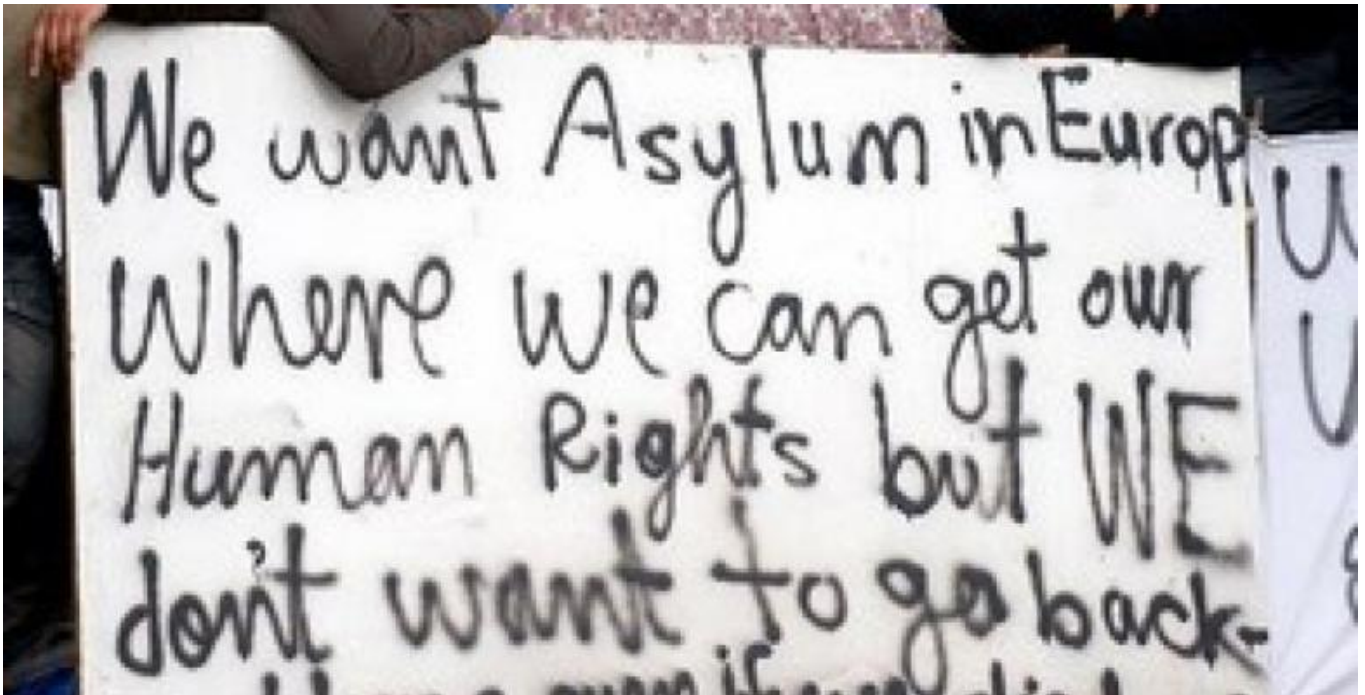 We want Asylum in Europ
where we can get our
Human Rights but WE
don't want to go back-
even if